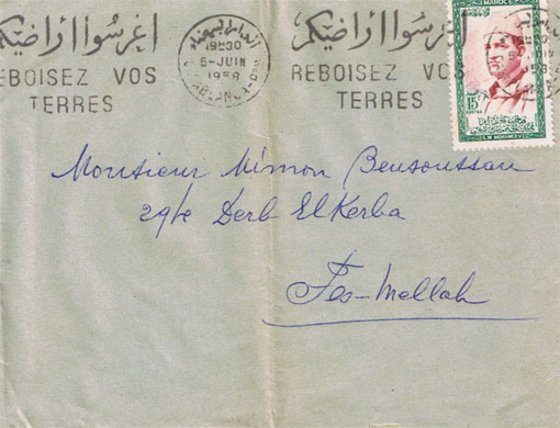 اغرسوا اراضيكم
REBOISEZ VOS
TERRES
الدار البيضاء
19H30
5-JUIN
1958
CASABLANCA
اغرسوا اراضيكم
REBOISEZ VOS
TERRES
MAROC
15F
POSTES
S.M. MOHAMED V
Monsieur Mimon Bensoussan
29bc Derb El Kerba
Fes-Mellah